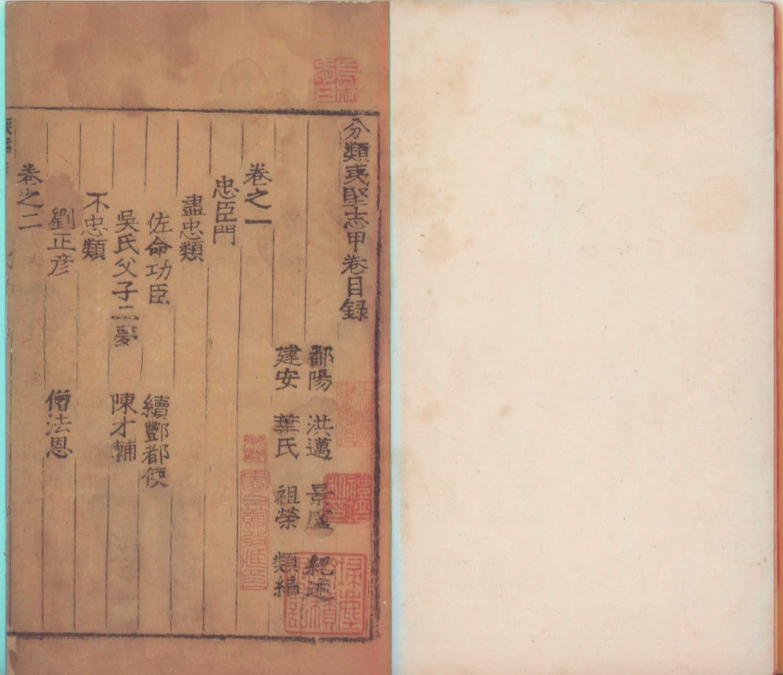 分類夷堅志甲卷目錄
鄱陽 洪邁 景廬 紀述
建安 葉氏 祖榮 類編
卷之一
忠臣門
盡忠類
佐命功臣 續酆都使
吳氏父子二夢 陳才輔
不忠類
劉正彦 僧法恩
卷之二